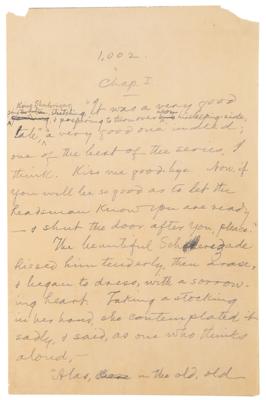 1,002.
Chap. I
King Shahriyar
stretching
"It was a very good
& preparing to turn over on his sleeping-side,
tale", a very good one indeed;
one of the best of the series, I
think. Kiss me good-bye. Now if
you will be so good as to let the
headsman know you are ready
— & shut the door after you, please."
The beautiful Scherezade
kissed him tenderly, then arose,
& began to dress, with a sorrow-
ing heart. Taking a stocking
in her hand, she contemplated it
sadly, & said, as one who thinks
aloud,—
"Alas, in the old, old